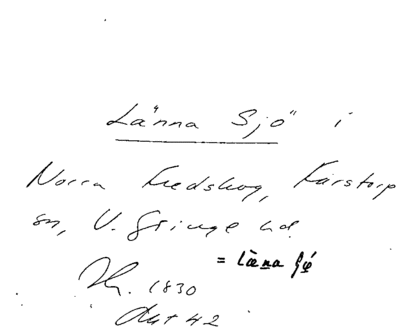 Länna Sjö" i
Norra Fredskog, Färstorp
sn, V. Göinge hd.
= Læna Sjø
Th. 1830
Art 42